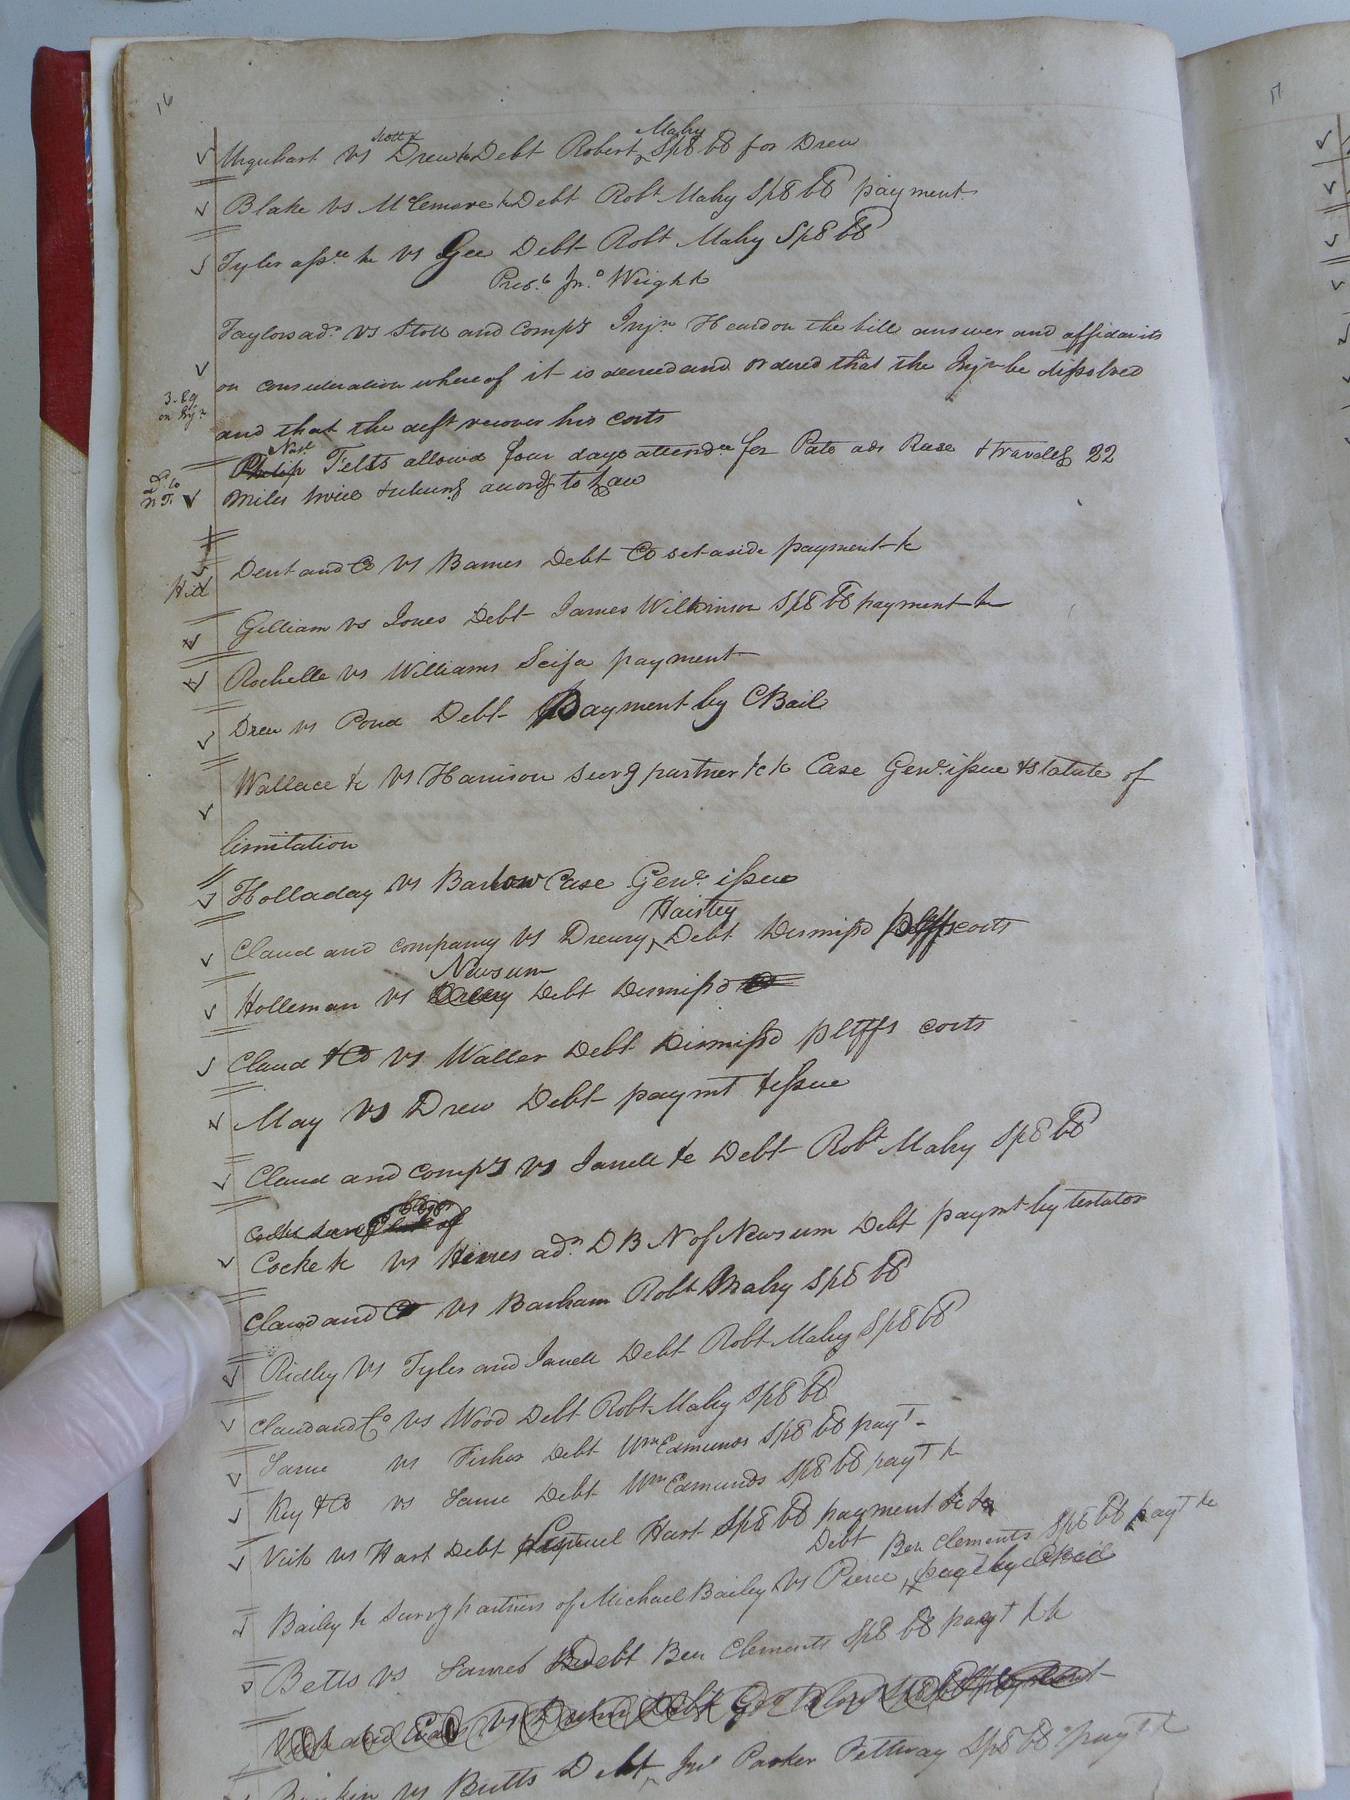 16
17
Scott &
Mabry
Urquhart vs Drew &c Debt Robert Sp8 b8 for Drew
Blake vs McLemore &c Debt Robt Mabry Sp8 b8 payment
Tyler assee &c vs Gee Debt Robt Mabry Sp8 b8
Jno Wright
Taylors adr vs Stott and Comps Injn Heard on the bill answer and affidavits
on consideration whereof it is decreed and ordered that the Injn be dissolved
3.
on Injn
and that the deft recover his costs
Nat
Felts allowd four days attendce for Pate ads Rase & traveling 22
miles twice & returng accordg to Law
Dent and Co vs Barnes Debt Co set aside payment &c
Gilliam vs Jones Debt James Wilkinson Sp8 b8 payment &c
Rochelle vs Williams Scifa payment
Drew vs Pond Debt Payment by CBail
Wallace &c vs Harrison survg partner &c &c Case Genl issue & statute of
limitation
Holladay vs Barlow Case Genl issue
Haistey
Claud and company vs Drewry Debt Dismissd pltffs costs
Newsum
Holleman vs Debt Dismissd
Claud & Co vs Waller Debt Dismissd pltffs costs
May vs Drew Debt paymt & issue
Claud and comps vs Janell &c Debt Robt Mabry Sp8 b8
Cocke &c vs Hines adr D B N of Newsum Debt paymt by testator
Claud and Co vs Barham Robt Mabry Sp8 b8
Ridley vs Tyler and Janell Debt Robt Mabry Sp8 b8
Claud and Co vs Wood Debt Robt Mabry Sp8 b8
Same vs Fisher Debt Wm Edmunds Sp8 b8 payt
Key & Co vs Same Debt Wm Edmunds Sp8 b8 payt &c
Vick vs Hart Debt Hart Sp8 b8 payment &c
Debt Ben Clements Sp8 b8 payt &c
Bailey &c survg partners of Michael Bailey vs Pierce
Betts vs James Debt Ben Clements Sp8 b8 payt &c
vs Butts Debt Jno Parker Pettway Sp8 b8 payt &c